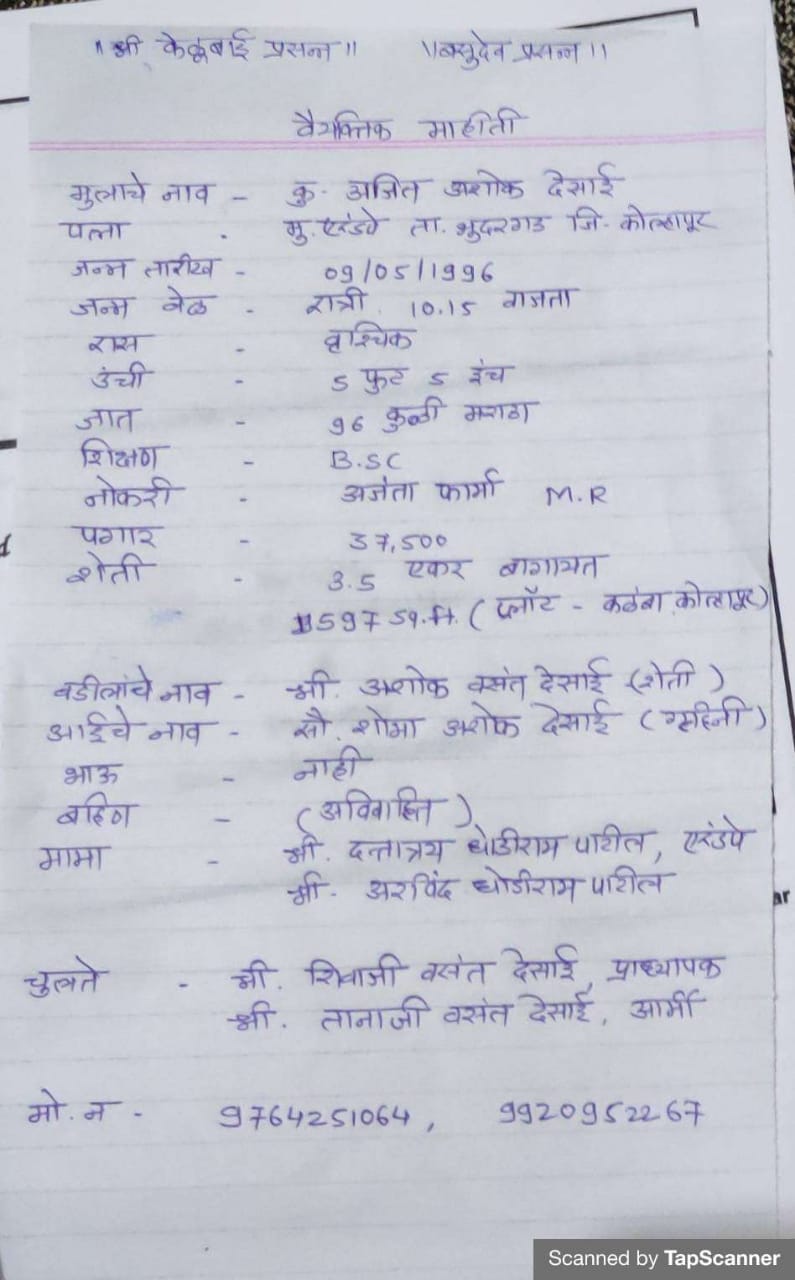 ॥ श्री केळूबाई प्रसन्न ॥ ॥ वसुदेव प्रसन्न ॥
वैयक्तिक माहीती
मुलाचे नाव - कु. अजित अशोक देसाई
पत्ता . मु. एरंडपे ता. भुदरगड जि. कोल्हापूर
जन्म तारीख - 09/05/1996
जन्म वेळ - रात्री. 10.15 वाजता
रास - वृश्चिक
उंची - 5 फुट 5 इंच
जात - 96 कुळी मराठा
शिक्षण - B.SC
नोकरी - अजंता फार्मा M.R
पगार - 37,500
शेती - 3.5 एकर बागायत
1597 sq.ft. (प्लॉट - कळंबा, कोल्हापूर)
वडीलांचे नाव - श्री. अशोक वसंत देसाई (शेती)
आईचे नाव - सौ. शोभा अशोक देसाई (गृहिनी)
भाऊ - नाही
बहिण - (अविवाहित)
मामा - श्री. दत्तात्रय धोंडीराम पाटील, एरंडपे
श्री. अरविंद धोंडीराम पाटील
चुलते - श्री. शिवाजी वसंत देसाई, प्राध्यापक
श्री. तानाजी वसंत देसाई, आर्मी
मो. न - 9764251064, 9920952267
Scanned by TapScanner